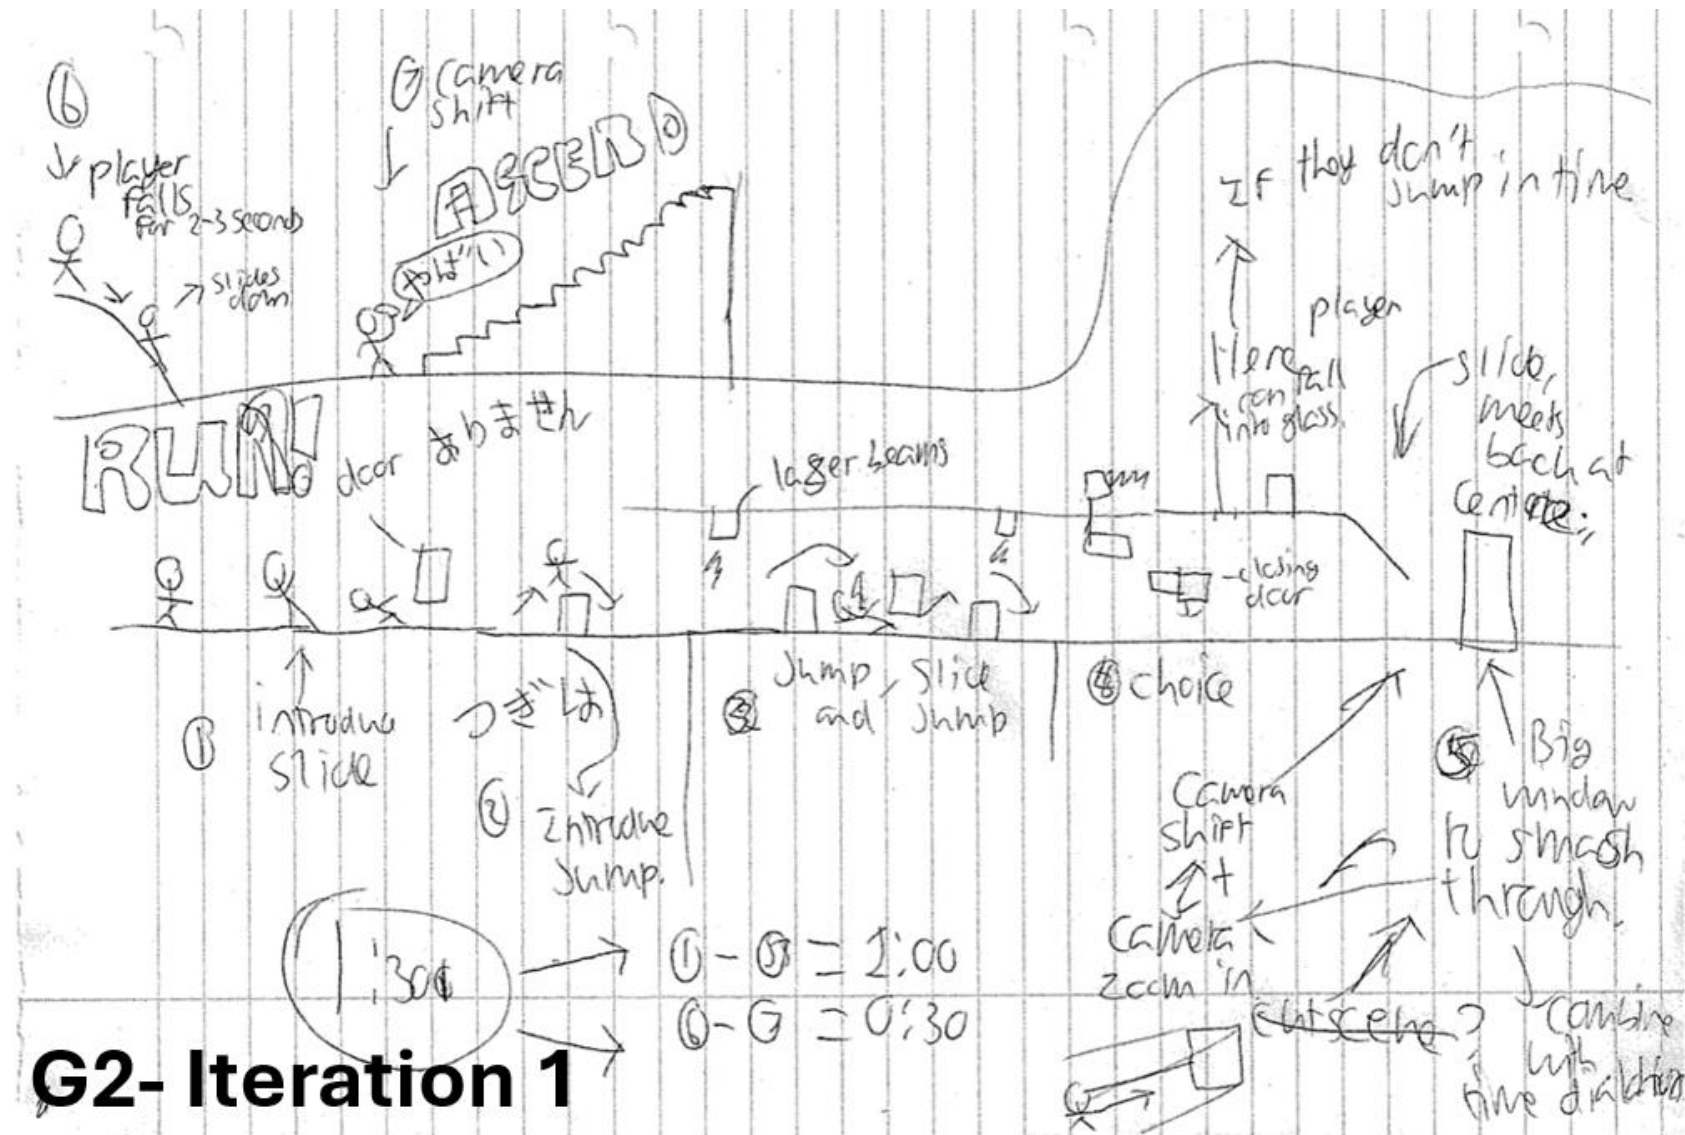 ⑥
player
falls
for 2-3 seconds
slides
down
⑦ camera
shift
ASCEND
やばい
If they don't
jump in time
player
Here
can fall
into glass.
slide,
meets
back at
centre.
RUN!
door ありません
laser beams
closing
door
①
introduce
slide
つぎは
②
Introduce
Jump.
③
Jump, Slide
and Jump
④ choice
⑤ Big
window
to smash
through.
Camera
shift
+
Camera
zoom in
cutscene?
combine
with
time dialation
1:30
①-⑤ = 1:00
⑥-⑦ = 0:30
G2- Iteration 1